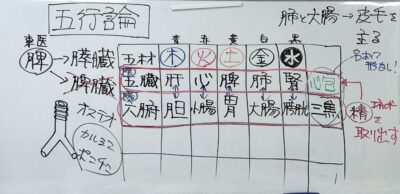 五行論
肺と大腸→皮毛を主る
東医
脾
膵臓
脾臓
青 赤 黄 白 黒
五材 木 火 土 金 水
五臓 肝 心 脾 肺 腎 心包
六腑 胆 小腸 胃 大腸 膀胱 三焦
名あって形なし!
精
エネルギーを取り出す
オステオ
カルヨニ
ポンチン